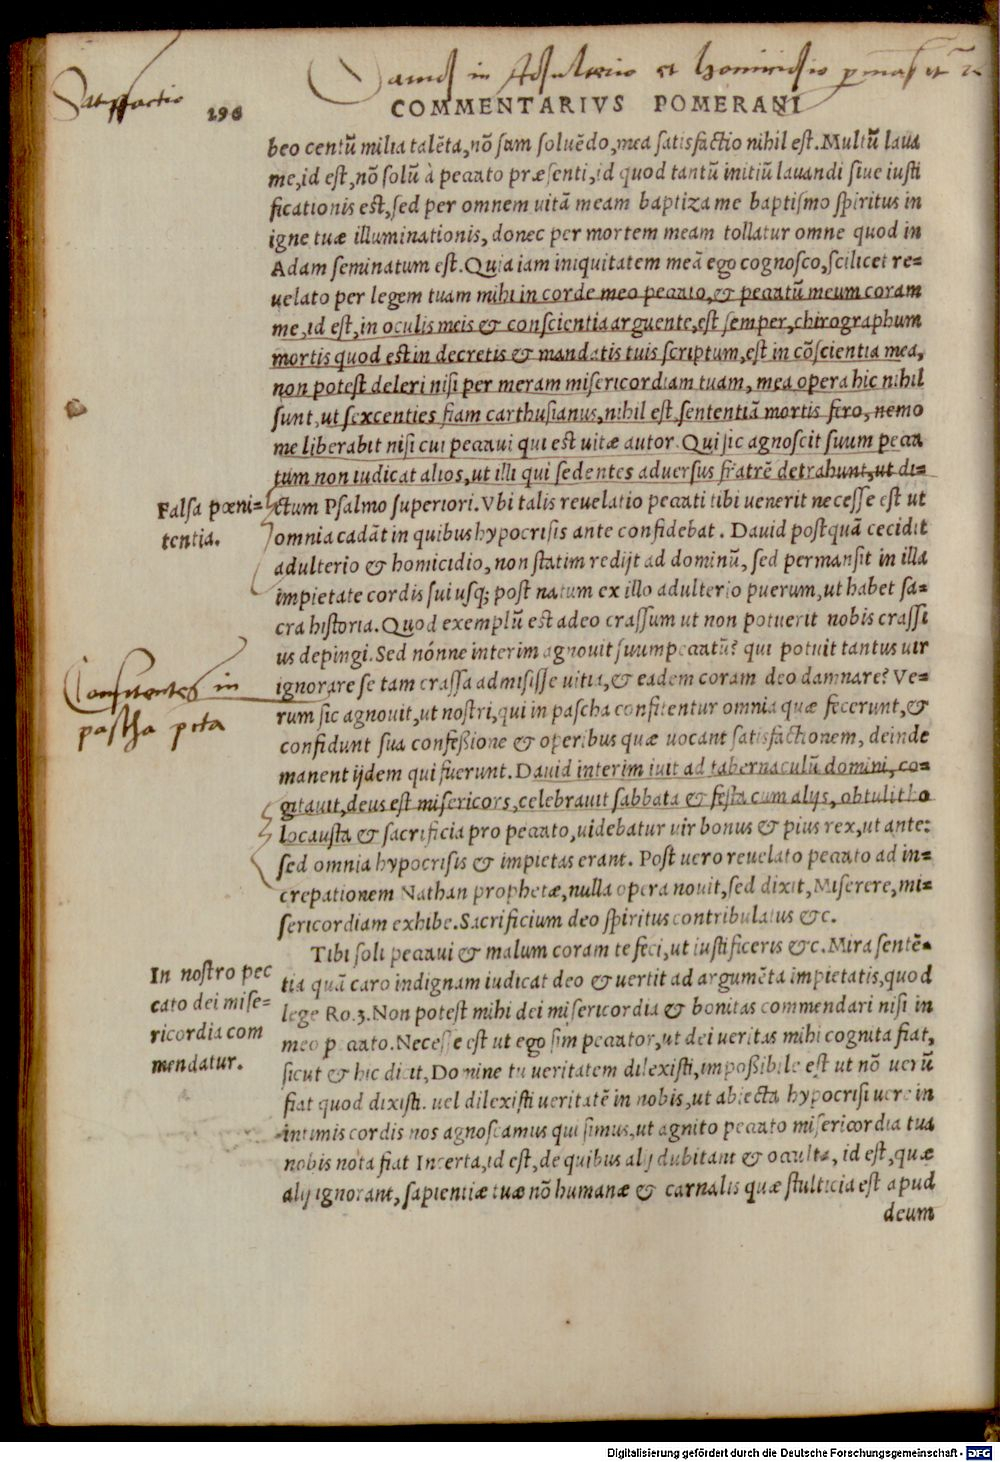 Satisfactio
Dauid in Adulterio et homicidio
290
COMMENTARIVS POMERANI
beo centũ milia talẽta, nõ sum soluẽdo, mea satisfactio nihil est. Multũ laua
me, id est, nõ solũ à peccato præsenti, id quod tantũ initiũ lauandi siue iusti
ficationis est, sed per omnem uitã meam baptiza me baptismo spiritus in
igne tuæ illuminationis, donec per mortem meam tollatur omne quod in
Adam seminatum est. Quia iam iniquitatem meã ego cognosco, scilicet re=
uelato per legem tuam mihi in corde meo peccato, & peccatũ meum coram
me, id est, in oculis meis & conscientia arguente, est semper, chirographum
mortis quod est in decretis & mandatis tuis scriptum, est in cõscientia mea,
non potest deleri nisi per meram misericordiam tuam, mea opera hic nihil
sunt, ut sexcenties fiam carthusianus, nihil est, sententiã mortis fero, nemo
me liberabit nisi cui peccaui qui est uitæ autor. Qui sic agnoscit suum pecca
tum non iudicat alios, ut illi qui sedentes aduersus fratrẽ detrahunt, ut di=
Falsa pœni=
tentia.
ctum Psalmo superiori. Vbi talis reuelatio peccati tibi uenerit necesse est ut
omnia cadãt in quibus hypocrisis ante confidebat. Dauid postquã cecidit
adulterio & homicidio, non statim redijt ad dominũ, sed permansit in illa
impietate cordis sui usq; post natum ex illo adulterio puerum, ut habet sa=
cra historia. Quod exemplũ est adeo crassum ut non potuerit nobis crassi
us depingi. Sed nónne interim agnouit suum peccatũ? qui potuit tantus uir
Confitentes in
pascha
ignorare se tam crassa admisisse uitia, & eadem coram deo damnare? Ve=
rum sic agnouit, ut nostri, qui in pascha confitentur omnia quæ fecerunt, &
confidunt sua confeßione & operibus quæ uocant satisfactionem, deinde
manent ijdem qui fuerunt. Dauid interim iuit ad tabernaculũ domini, co=
gitauit, deus est misericors, celebrauit sabbata & festa cum alijs, obtulit ho
locausta & sacrificia pro peccato, uidebatur uir bonus & pius rex, ut ante:
sed omnia hypocrisis & impietas erant. Post uero reuelato peccato ad in=
crepationem Nathan prophetæ, nulla opera nouit, sed dixit, Miserere, mi=
sericordiam exhibe. Sacrificium deo spiritus contribulatus &c.
In nostro pec
cato dei mise=
ricordia com
mendatur.
Tibi soli peccaui & malum coram te feci, ut iustificeris &c. Mira sentẽ=
tia quã caro indignam iudicat deo & uertit ad argumẽta impietatis, quod
lege Ro. 3. Non potest mihi dei misericordia & bonitas commendari nisi in
meo peccato. Necesse est ut ego sim peccator, ut dei ueritas mihi cognita fiat,
sicut & hic dicit, Domine tu ueritatem dilexisti, impoßibile est ut nõ uerũ
fiat quod dixisti. uel dilexisti ueritatẽ in nobis, ut abiecta hypocrisi uere in
intimis cordis nos agnoscamus qui simus, ut agnito peccato misericordia tua
nobis nota fiat Incerta, id est, de quibus alij dubitant & occulta, id est, quæ
alij ignorant, sapientiæ tuæ nõ humanæ & carnalis quæ stulticia est apud
deum
Digitalisierung gefördert durch die Deutsche Forschungsgemeinschaft - DFG